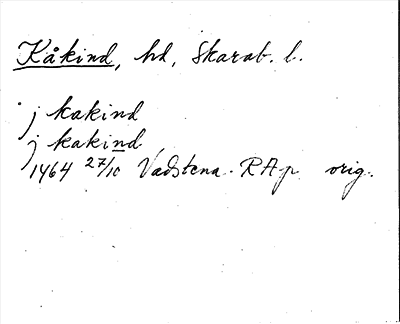 Kåkind, hd, Skarab. l.
j kakind
j kakind
1464 27/10 Vadstena. RAp orig.